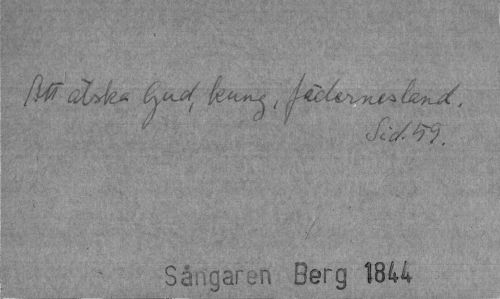 Att älska Gud, kung, fädernesland.
Sid. 59.
Sångaren Berg 1844